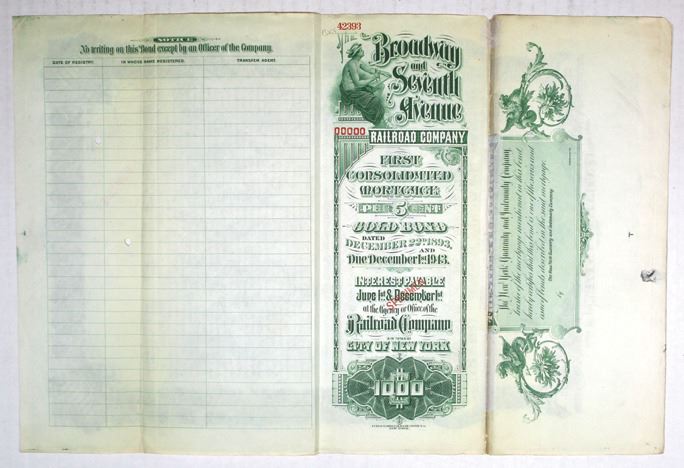 NOTICE
No writing on this Bond except by an Officer of the Company.
DATE OF REGISTRY.
IN WHOSE NAME REGISTERED.
TRANSFER AGENT.
42393
The
Broadway
and
Seventh
Avenue
00000
RAILROAD COMPANY
FIRST
CONSOLIDATED
MORTGAGE
PER 5 CENT
GOLD BOND
DATED
DECEMBER 22nd 1893,
AND
Due December 1st 1943.
INTEREST PAYABLE
June 1st & December 1st
SPECIMEN
at the Agency or Office of the
Railroad Company
IN THE
CITY OF NEW YORK
$1000
The New York Guaranty and Indemnity Company
trustee of the mortgage mentioned in this bond,
hereby certifies that this bond is one of the series and
issue of bonds described in the said mortgage.
The New York Guaranty and Indemnity Company
by